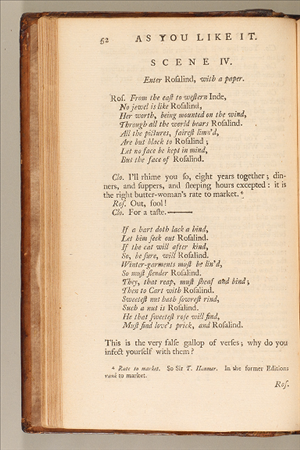 52 AS YOU LIKE IT.
SCENE IV.
Enter Rosalind, with a paper.
Ros. From the eaſt to weſtern Inde,
No jewel is like Roſalind,
Her worth, being mounted on the wind,
Through all the world bears Roſalind.
All the pictures, faireſt limn'd,
Are but black to Roſalind;
Let no face be kept in mind,
But the face of Roſalind.
Clo. I'll rhime you ſo, eight years together; din-
ners, and ſuppers, and ſleeping hours excepted: it is
the right butter-woman's rate to market.*
Roſ. Out, fool!
Clo. For a taſte.———
If a hart doth lack a hind,
Let him ſeek out Roſalind.
If the cat will after kind,
So, be ſure, will Roſalind.
Winter-garments muſt be lin'd,
So muſt ſlender Roſalind.
They, that reap, muſt ſheaf and bind;
Then to Cart with Roſalind.
Sweeteſt nut hath ſowreſt rind,
Such a nut is Roſalind.
He that ſweeteſt roſe will find,
Muſt find love's prick, and Roſalind.
This is the very falſe gallop of verſes; why do you
infect yourſelf with them?
* Rate to market. So Sir T. Hanmer. In the former Editions
rank to market.
Roſ.